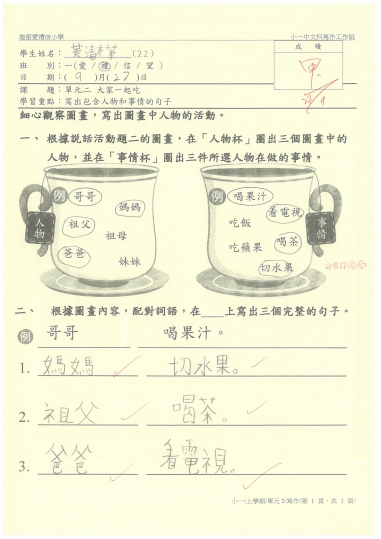 迦密愛禮信小學
小一中文科寫作工作紙
學生姓名：黃清樺(22)
成績
班別：一(愛/禮/信/望)
日期：(9)月(27)日
甲
課題：單元二 大家一起吃
學習重點：寫出包含人物和事情的句子
細心觀察圖畫，寫出圖畫中人物的活動。
一、根據說話活動題二的圖畫，在「人物杯」圈出三個圖畫中的
人物，並在「事情杯」圈出三件所選人物在做的事情。
人物
例 哥哥
媽媽
祖父
祖母
爸爸
妹妹
事情
例 喝果汁
看電視
吃飯
喝茶
吃蘋果
切水果
二、根據圖畫內容，配對詞語，在____上寫出三個完整的句子。
例 哥哥 喝果汁。
1. 媽媽 切水果。
2. 祖父 喝茶。
3. 爸爸 看電視。
小一/上學期/單元2/寫作/第 1 頁，共 1 頁/